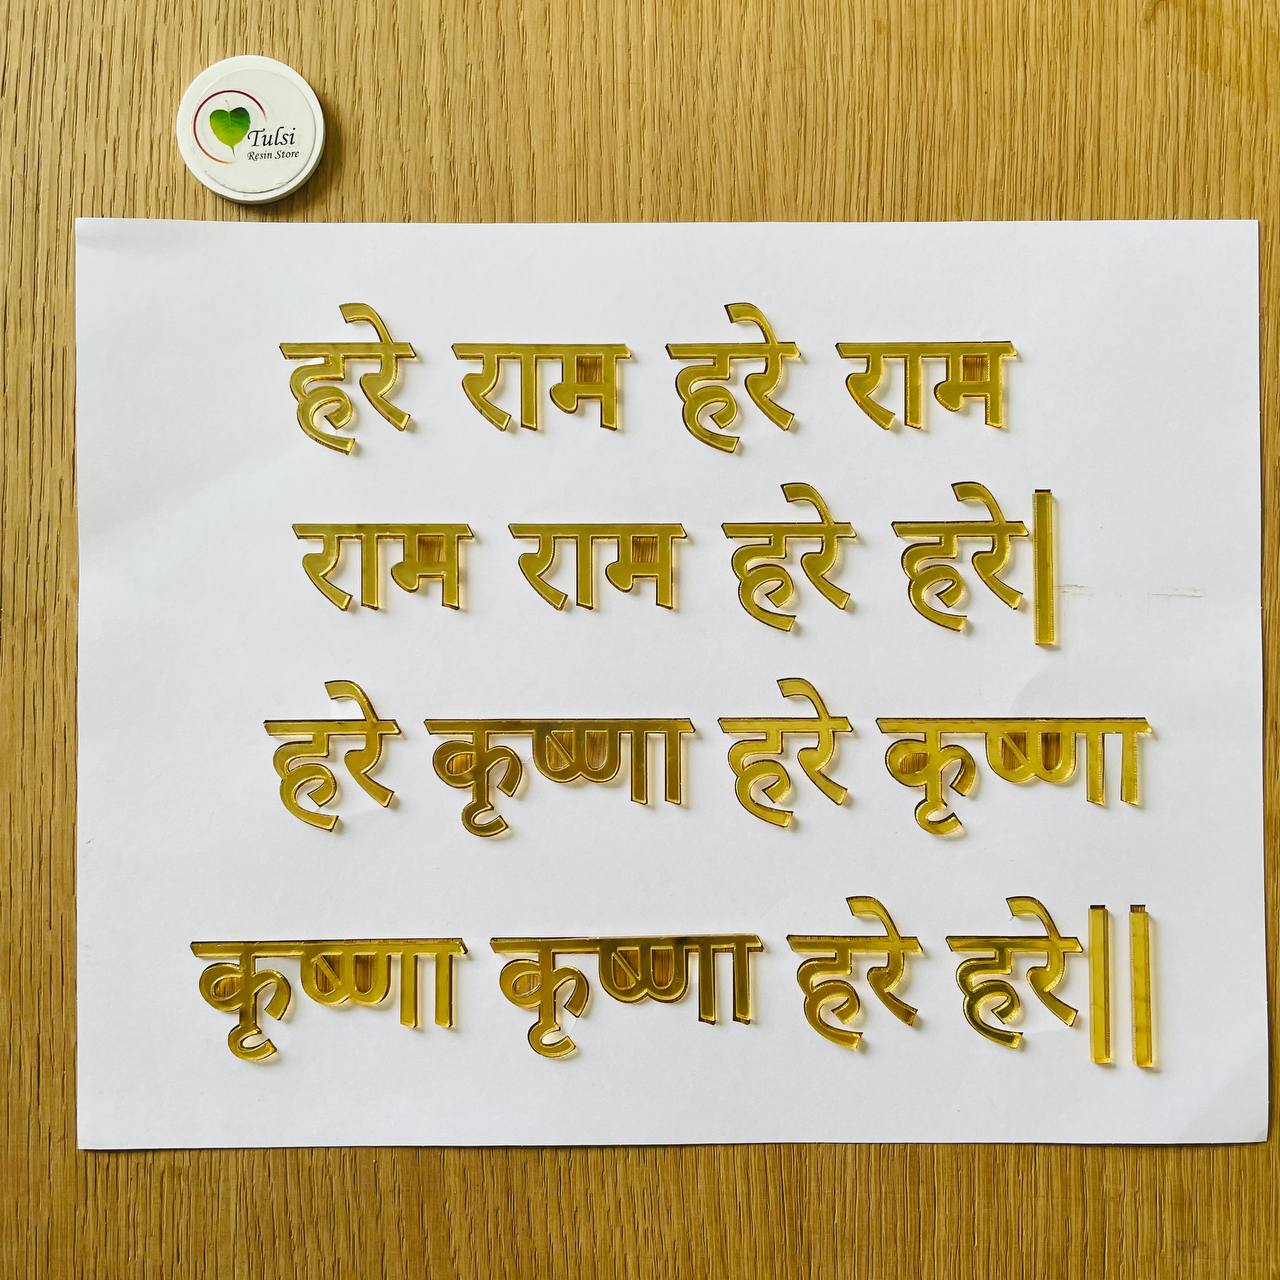 Tulsi
Resin Store
हरे राम हरे राम
राम राम हरे हरे|
हरे कृष्णा हरे कृष्णा
कृष्णा कृष्णा हरे हरे||